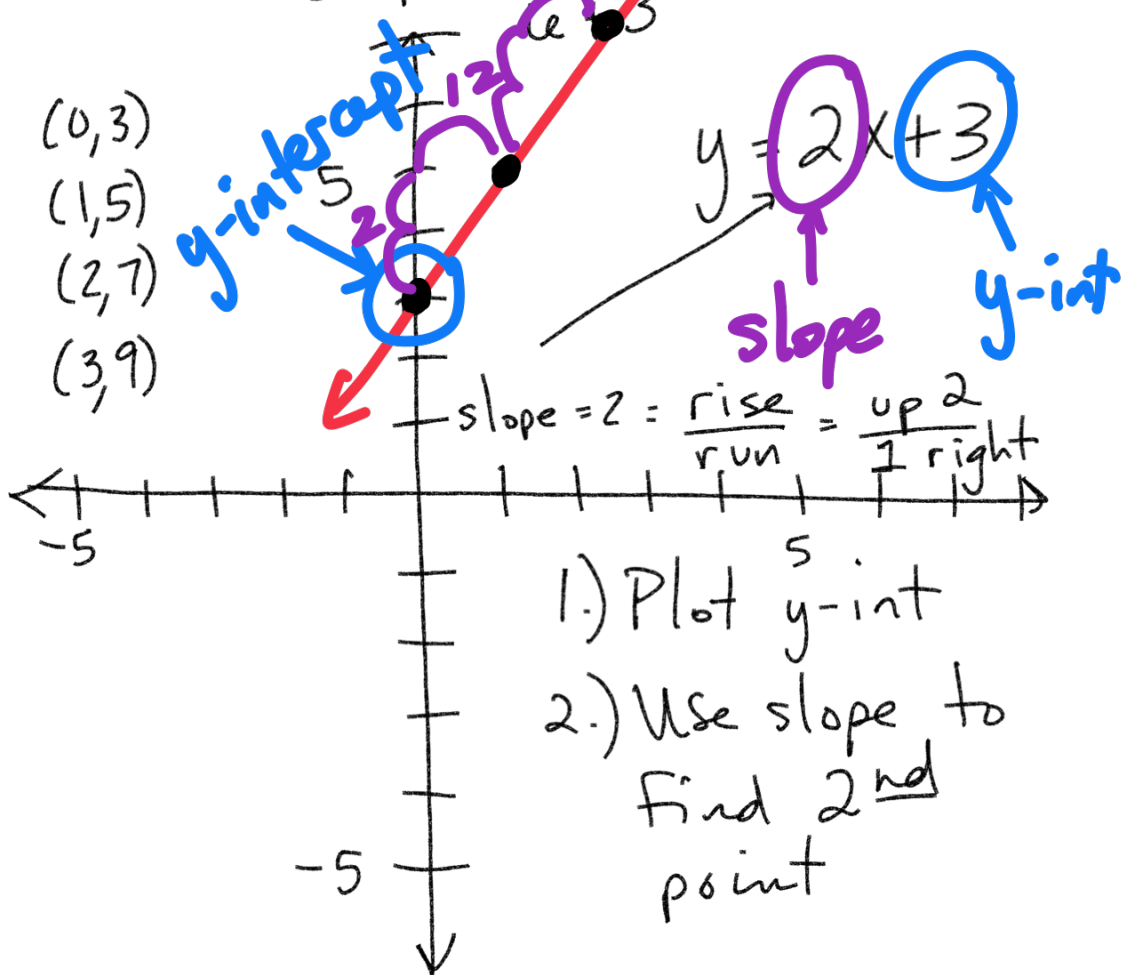 (0,3)
(1,5)
(2,7)
(3,9)
y-intercept
5
2
1
2
3
y = 2x + 3
slope
y-int
slope = 2 = rise/run = up 2/1 right
-5
5
-5
1.) Plot y-int
2.) Use slope to
find 2nd
point